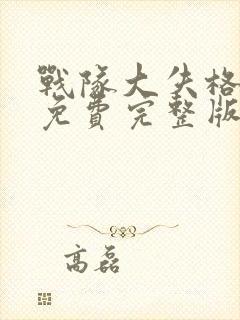 戰隊大失格
免費完整版
高磊